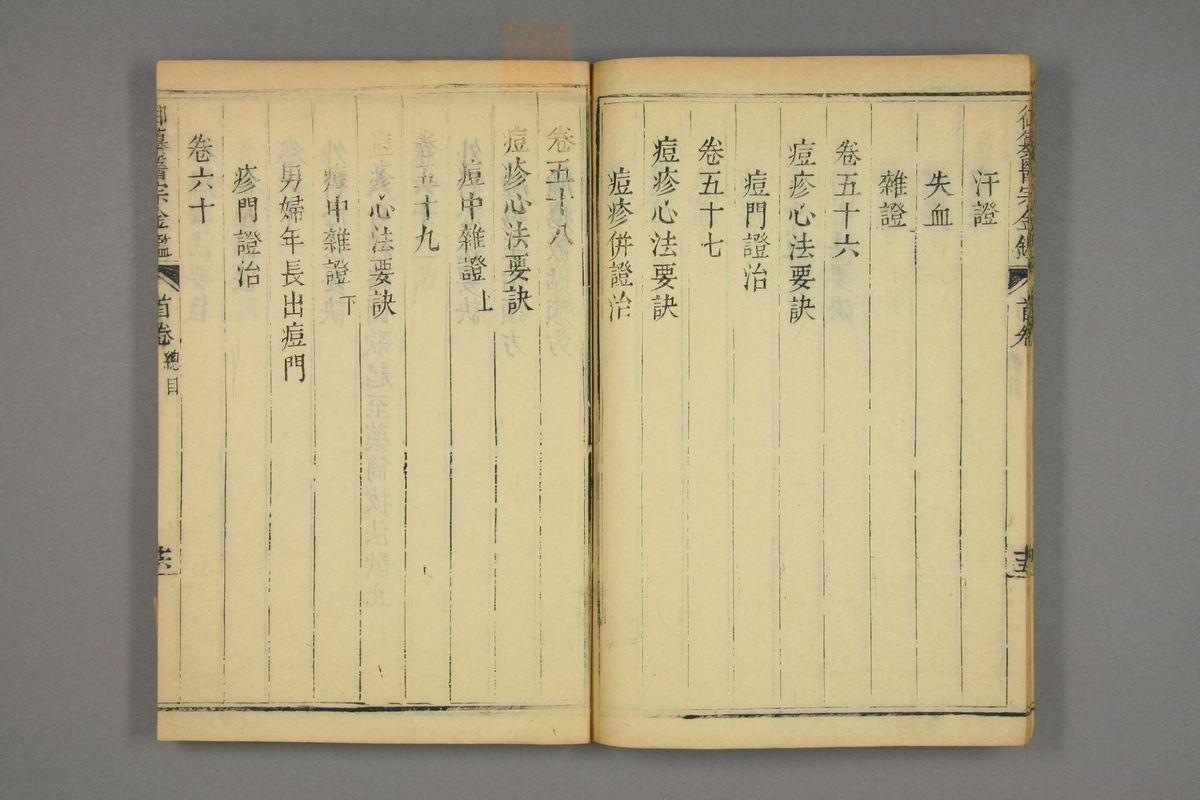 汗證
失血
雜證
卷五十六
痘疹心法要訣
痘門證治
卷五十七
痘疹心法要訣
痘疹併證治
卷五十八
痘疹心法要訣
痘中雜證上
卷五十九
痘疹心法要訣
痘中雜證下
男婦年長出痘門
疹門證治
卷六十
御纂醫宗金鑑
首卷
總目